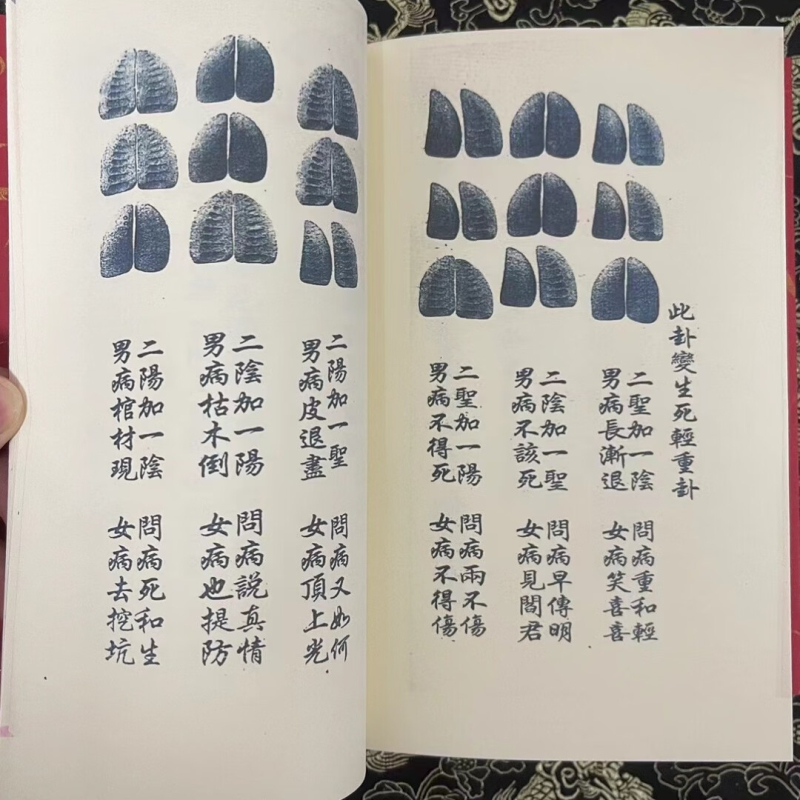 此卦變生死輕重卦
二聖加一陰　問病重和輕
男病長漸退　女病笑喜喜
二陰加一聖　問病早傳明
男病不該死　女病見閻君
二聖加一陽　問病兩不傷
男病不得死　女病不得傷
二陽加一聖　問病又如何
男病皮退盡　女病頂上光
二陰加一陽　問病説真情
男病枯木倒　女病也提防
二陽加一陰　問病死和生
男病棺材現　女病去挖坑